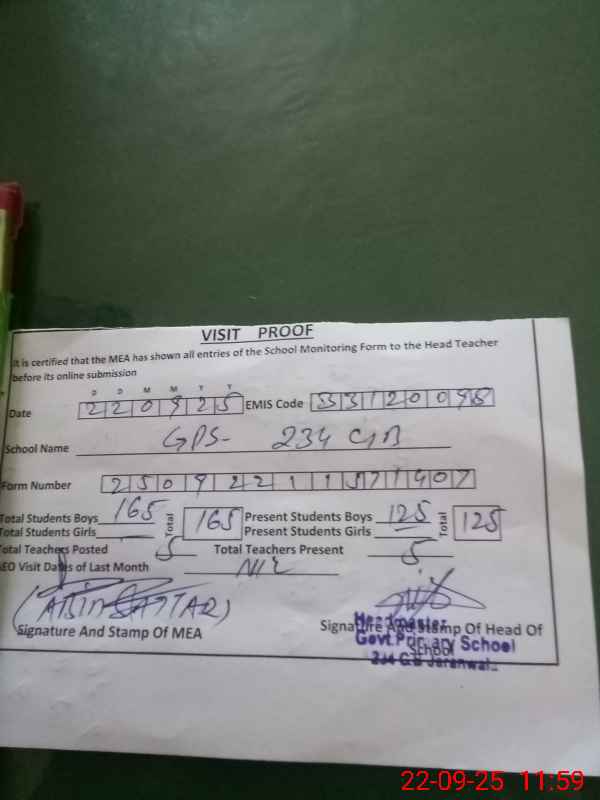 VISIT PROOF
It is certified that the MEA has shown all entries of the School Monitoring Form to the Head Teacher
before its online submission
D D M M Y Y
Date 220925 EMIS Code
School Name GPS- 234 GB
Form Number
Total Students Boys 165 Total 165 Present Students Boys 125 Total 125
Total Students Girls Present Students Girls
Total Teachers Posted 5 Total Teachers Present 5
AEO Visit Dates of Last Month NIL
Signature And Stamp Of MEA
Signature And Stamp Of Head Of
School
Headmaster
Govt. Primary School
234 G.B Jaranwala
22-09-25 11:59